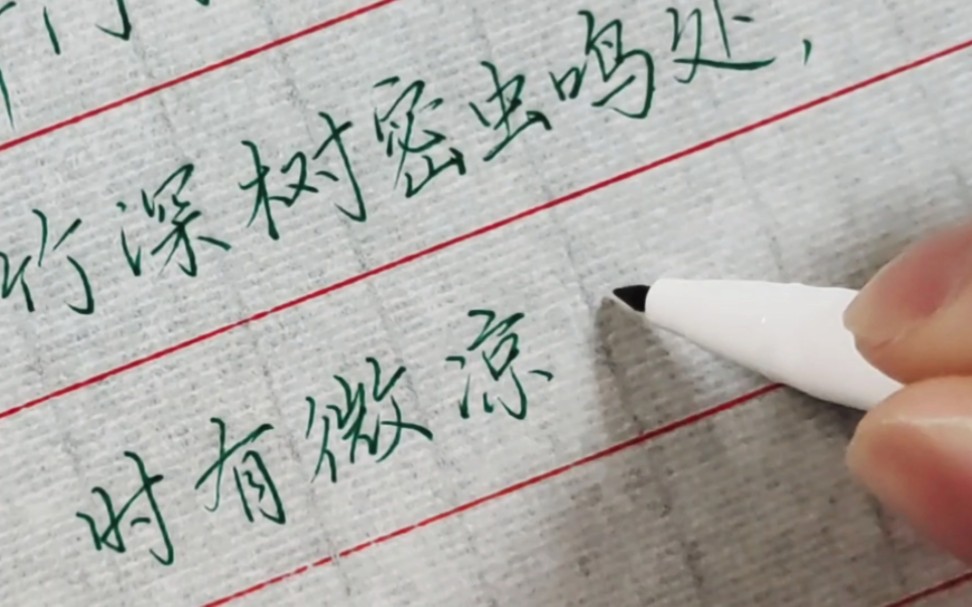 竹深树密虫鸣处，
时有微凉